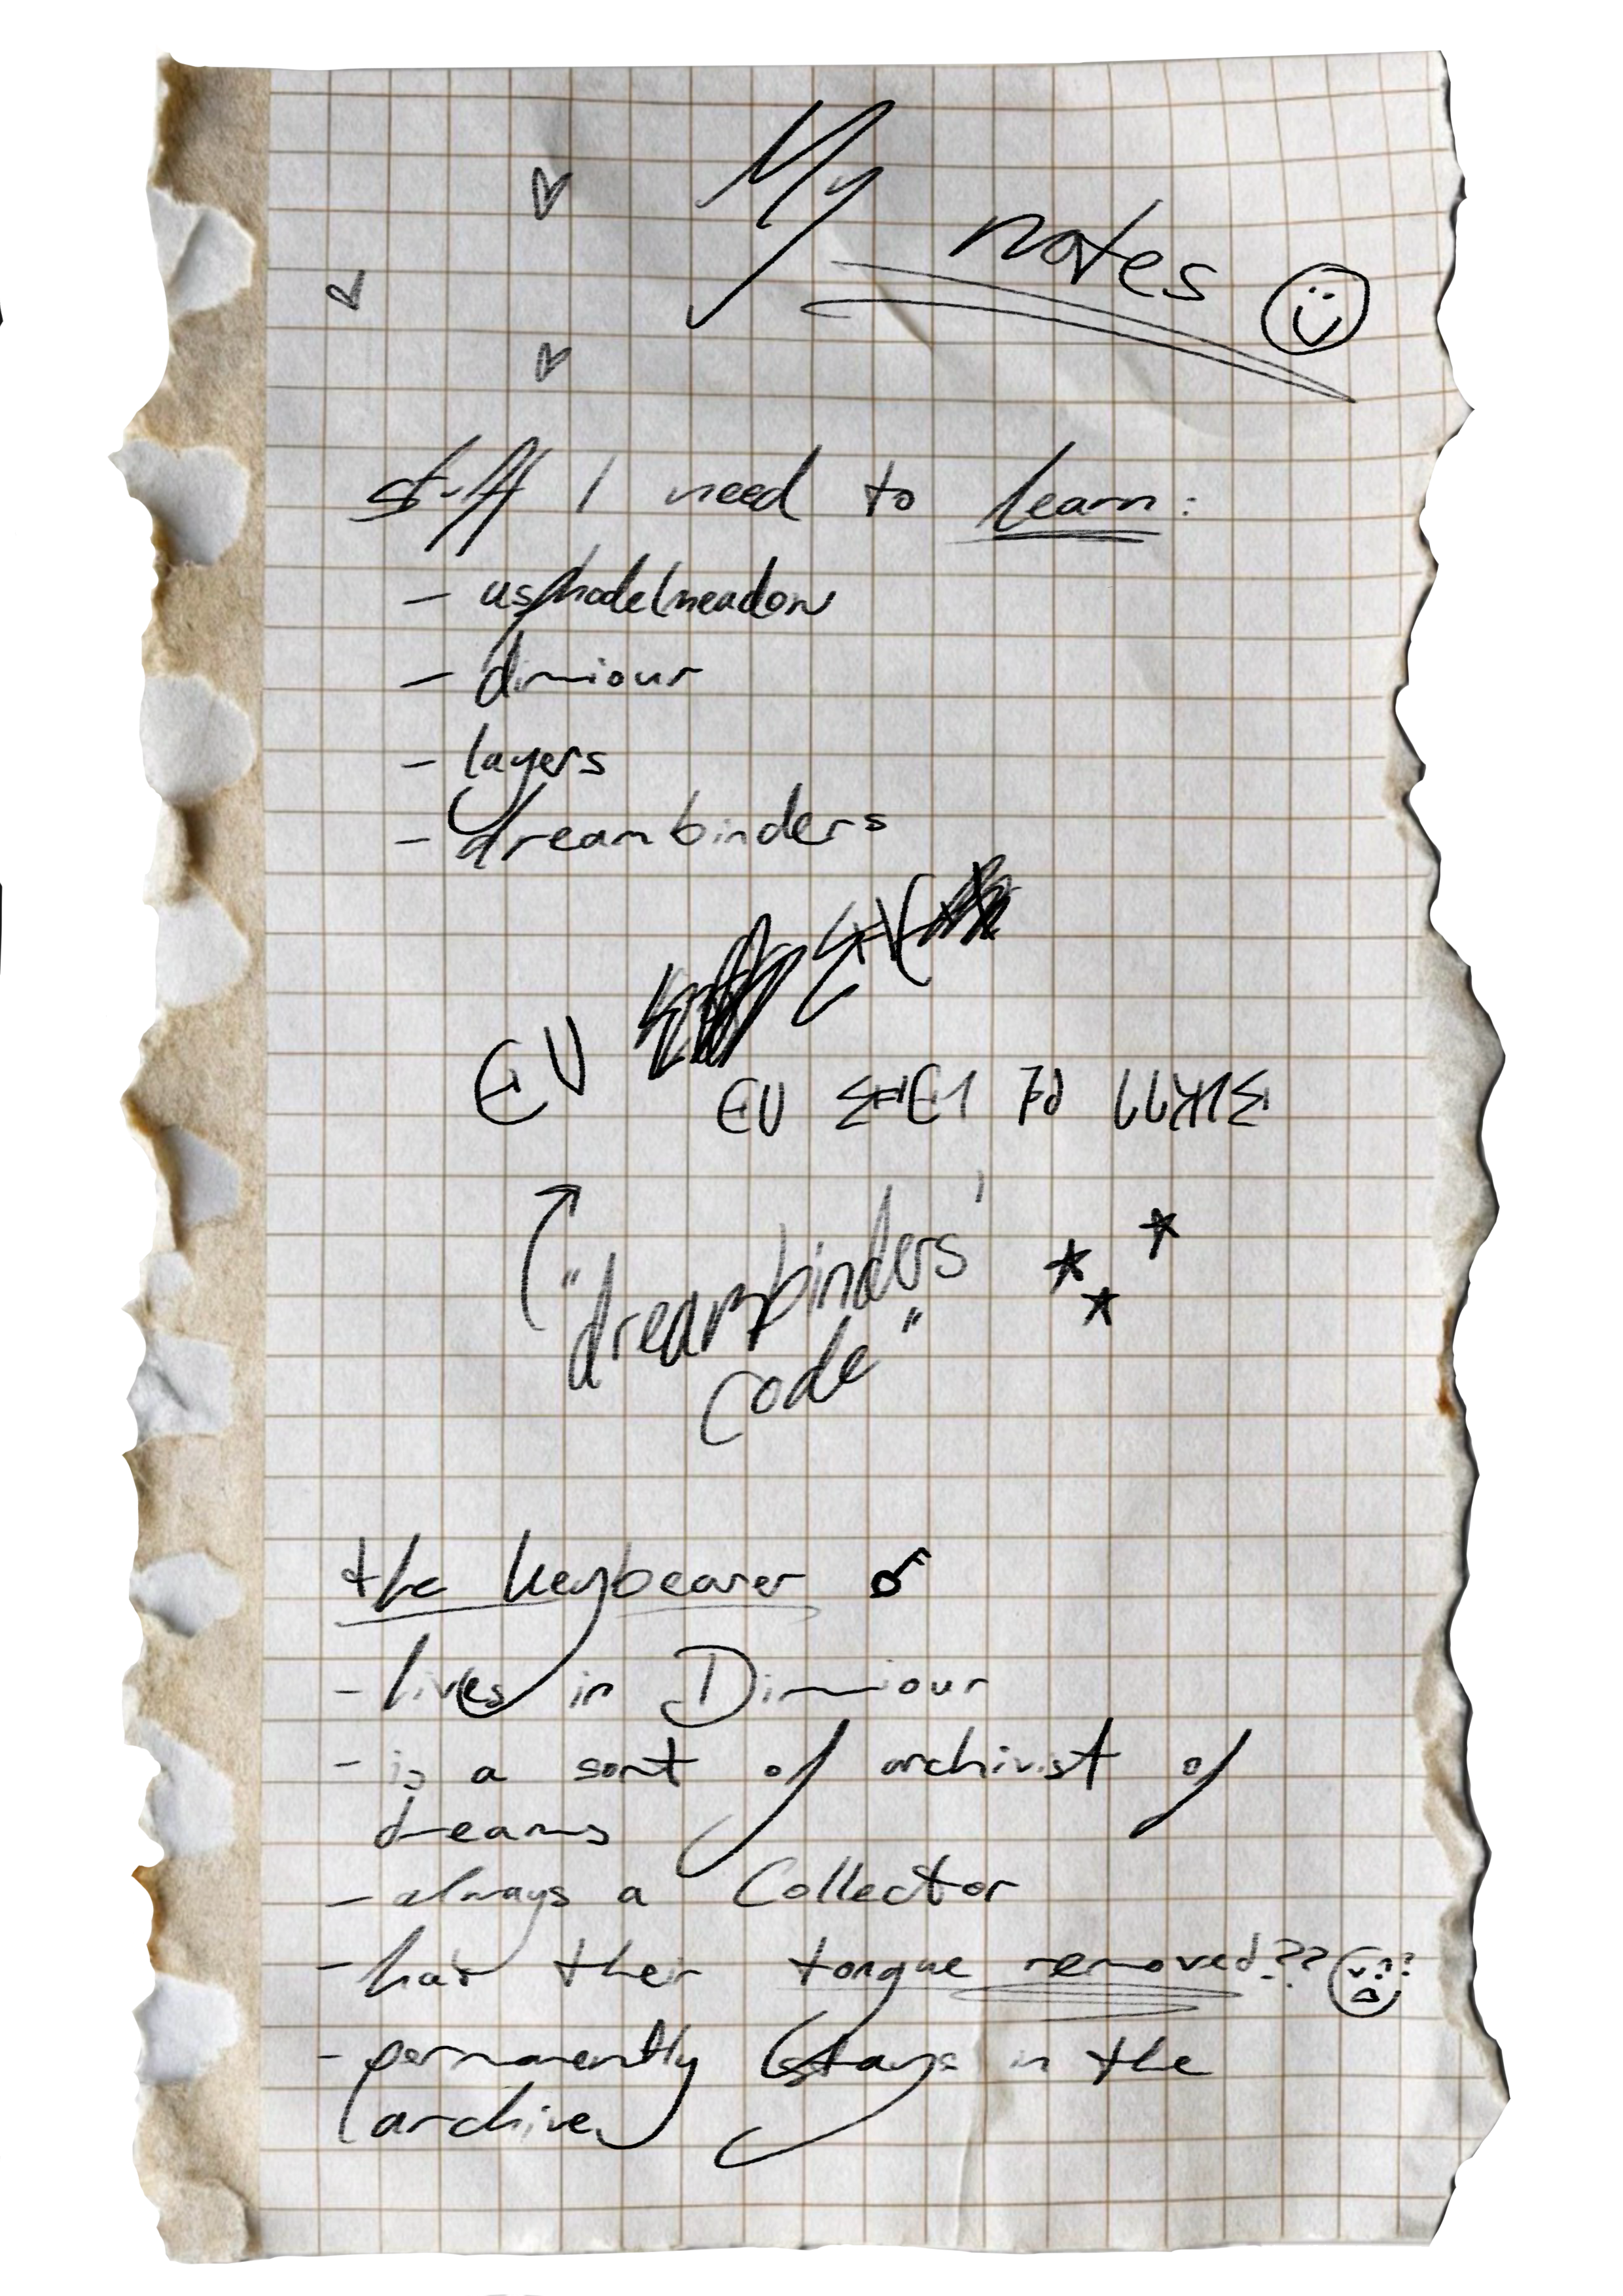 My notes
stuff I need to learn:
- asphodelmeadow
- dimiour
- layers
- dreambinders
"dreambinders'
code"
the keybearer
- lives in Dimiour
- is a sort of archivist of
dreams
- always a Collector
- has their tongue removed??
- permanently stays in the
archive